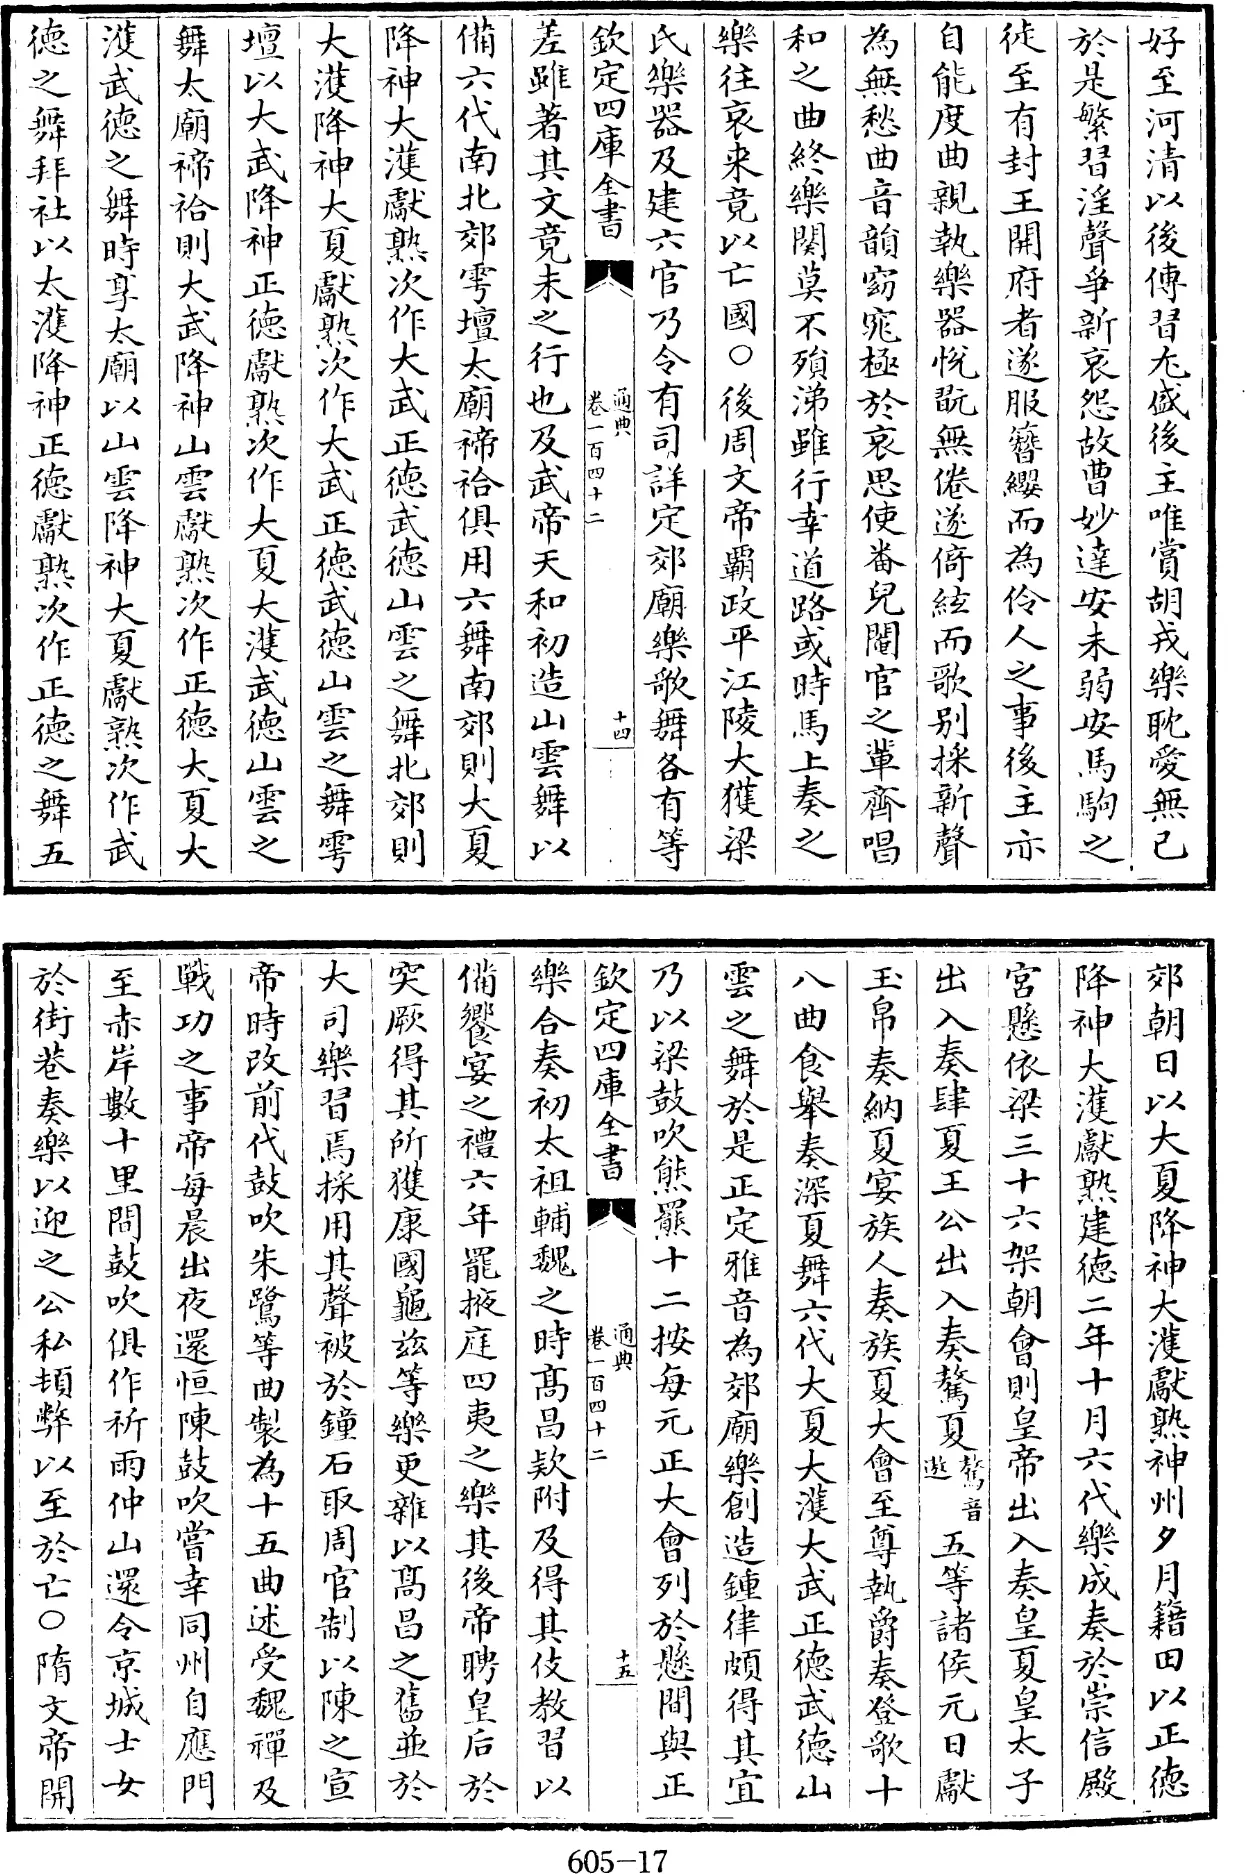 好至河清以後傳習尤盛後主唯賞胡戎樂耽愛無已
於是繁習淫聲爭新哀怨故曹妙達安未弱安馬駒之
徒至有封王開府者遂服簪纓而為伶人之事後主亦
自能度曲親執樂器悅翫無倦遂倚絃而歌别採新聲
為無愁曲音韻窈窕極於哀思使畨兒閹官之輩齊唱
和之曲終樂闋莫不殞涕雖行幸道路或時馬上奏之
樂往哀来竟以亡國○後周文帝霸政平江陵大獲梁
氏樂器及建六官乃令有司詳定郊廟樂歌舞各有等
欽定四庫全書
通典
卷一百四十二
十四
差雖著其文竟未之行也及武帝天和初造山雲舞以
備六代南北郊雩壇太廟禘祫俱用六舞南郊則大夏
降神大濩獻熟次作大武正德武德山雲之舞北郊則
大濩降神大夏獻熟次作大武正德武德山雲之舞雩
壇以大武降神正德獻熟次作大夏大濩武德山雲之
舞太廟禘祫則大武降神山雲獻熟次作正德大夏大
濩武德之舞時享太廟以山雲降神大夏獻熟次作武
德之舞拜社以太濩降神正德獻熟次作正德之舞五
郊朝日以大夏降神大濩獻熟神州夕月籍田以正德
降神大濩獻熟建德二年十月六代樂成奏於崇信殿
宮懸依梁三十六架朝會則皇帝出入奏皇夏皇太子
出入奏肆夏王公出入奏驁夏驁音遨五等諸侯元日獻
玉帛奏納夏宴族人奏族夏大會至尊執爵奏登歌十
八曲食舉奏深夏舞六代大夏大濩大武正德武德山
雲之舞於是正定雅音為郊廟樂創造鍾律頗得其宜
乃以梁鼓吹熊羆十二按每元正大會列於懸間與正
欽定四庫全書
通典
卷一百四十二
十五
樂合奏初太祖輔魏之時高昌欵附及得其伎教習以
備饗宴之禮六年罷掖庭四夷之樂其後帝聘皇后於
突厥得其所獲康國龜茲等樂更雜以髙昌之舊並於
大司樂習焉採用其聲被於鐘石取周官制以陳之宣
帝時改前代鼓吹朱鷺等曲製為十五曲述受魏禪及
戰功之事帝每晨出夜還恒陳鼓吹嘗幸同州自應門
至赤岸數十里間鼓吹俱作祈雨仲山還令京城士女
於街巷奏樂以迎之公私頓弊以至於亡○隋文帝開
605-17